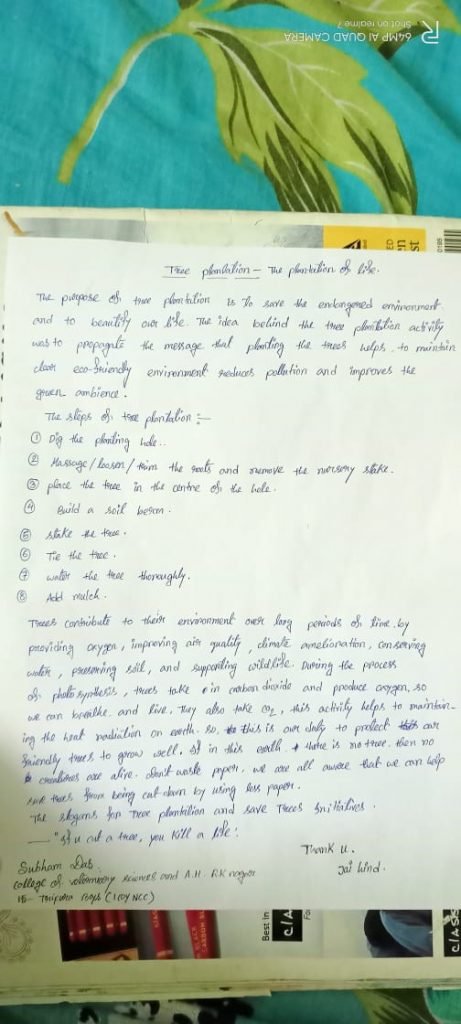 64MP AI QUAD CAMERA
Shot on realme 7
Tree plantation - The plantation of life.
The purpose of tree plantation is To save the endangered environment
and to beautify our life. The idea behind the tree plantation activity
was to propagate the message that planting the trees helps to maintain
clear eco-friendly environment reduces pollution and improves the
green ambience.
The steps of tree plantation :-
① Dig the planting hole..
② Massage/loosen/trim the roots and remove the nursery stake.
③ place the tree in the centre of the hole.
④ Build a soil berm.
⑤ stake the tree.
⑥ Tie the tree.
⑦ water the tree thoroughly.
⑧ Add mulch.
Trees contribute to their environment over long periods of time by
providing oxygen, improving air quality, climate amelioration, conserving
water, preserving soil, and supporting wildlife. During the process
of photosynthesis, trees take in carbon dioxide and produce oxygen, so
we can breathe and live. They also take CO2, this activity helps to maintain-
ing the heat radiation on earth. So, this is our duty to protect our
friendly trees to grow well. If in this earth there is no tree. then no
creatures are alive. don't waste paper, we are all aware that we can help
save trees from being cut down by using less paper.
The slogans for Tree plantation and save Trees Initiatives.
— "If u cut a tree, you kill a life".
Thank u.
Jai hind.
Subham Das
college of veterinary sciences and A.H. R.K nagar
15- Tripura (1 COY NCC)
Best in
CLAS